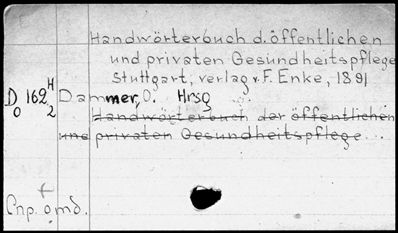 Handwörterbuch d. öffentlichen
und privaten Gesundheitspflege
Stuttgart, verlag v. F. Enke, 1891
D 162 H
O 2
Dammer, O. Hrsg
Handwörterbuch der öffentlichen
und privaten Gesundheitspflege...
Cnp. omd.